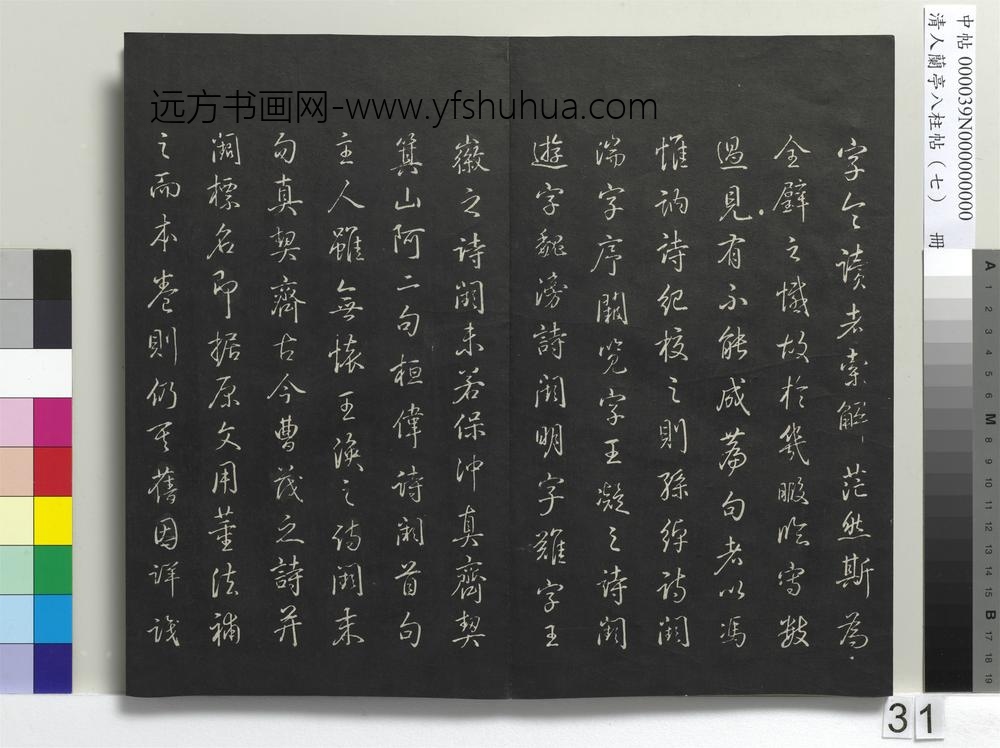 字今讀者索解茫然斯為
全璧之憾故於幾暇臨寫數
過見有不能成篇句者以馮
惟訥詩紀校之則孫綽詩闕
湍字序闕覽字王凝之詩闕
遊字魏滂詩闕明字難字王
徽之詩闕未若保沖真齊契
箕山阿二句桓偉詩闕首句
主人雖無懷王渙之詩闕末
句真契齊古今曹茂之詩并
闕標名即據原文用董法補
之而本卷則仍其舊因詳識
远方书画网-www.yfshuhua.com
中帖 000039N000000000
清人蘭亭八柱帖(七) 冊
A 1 2 3 4 5 6 M 8 9 10 11 12 13 14 15 B 17 18 19
31